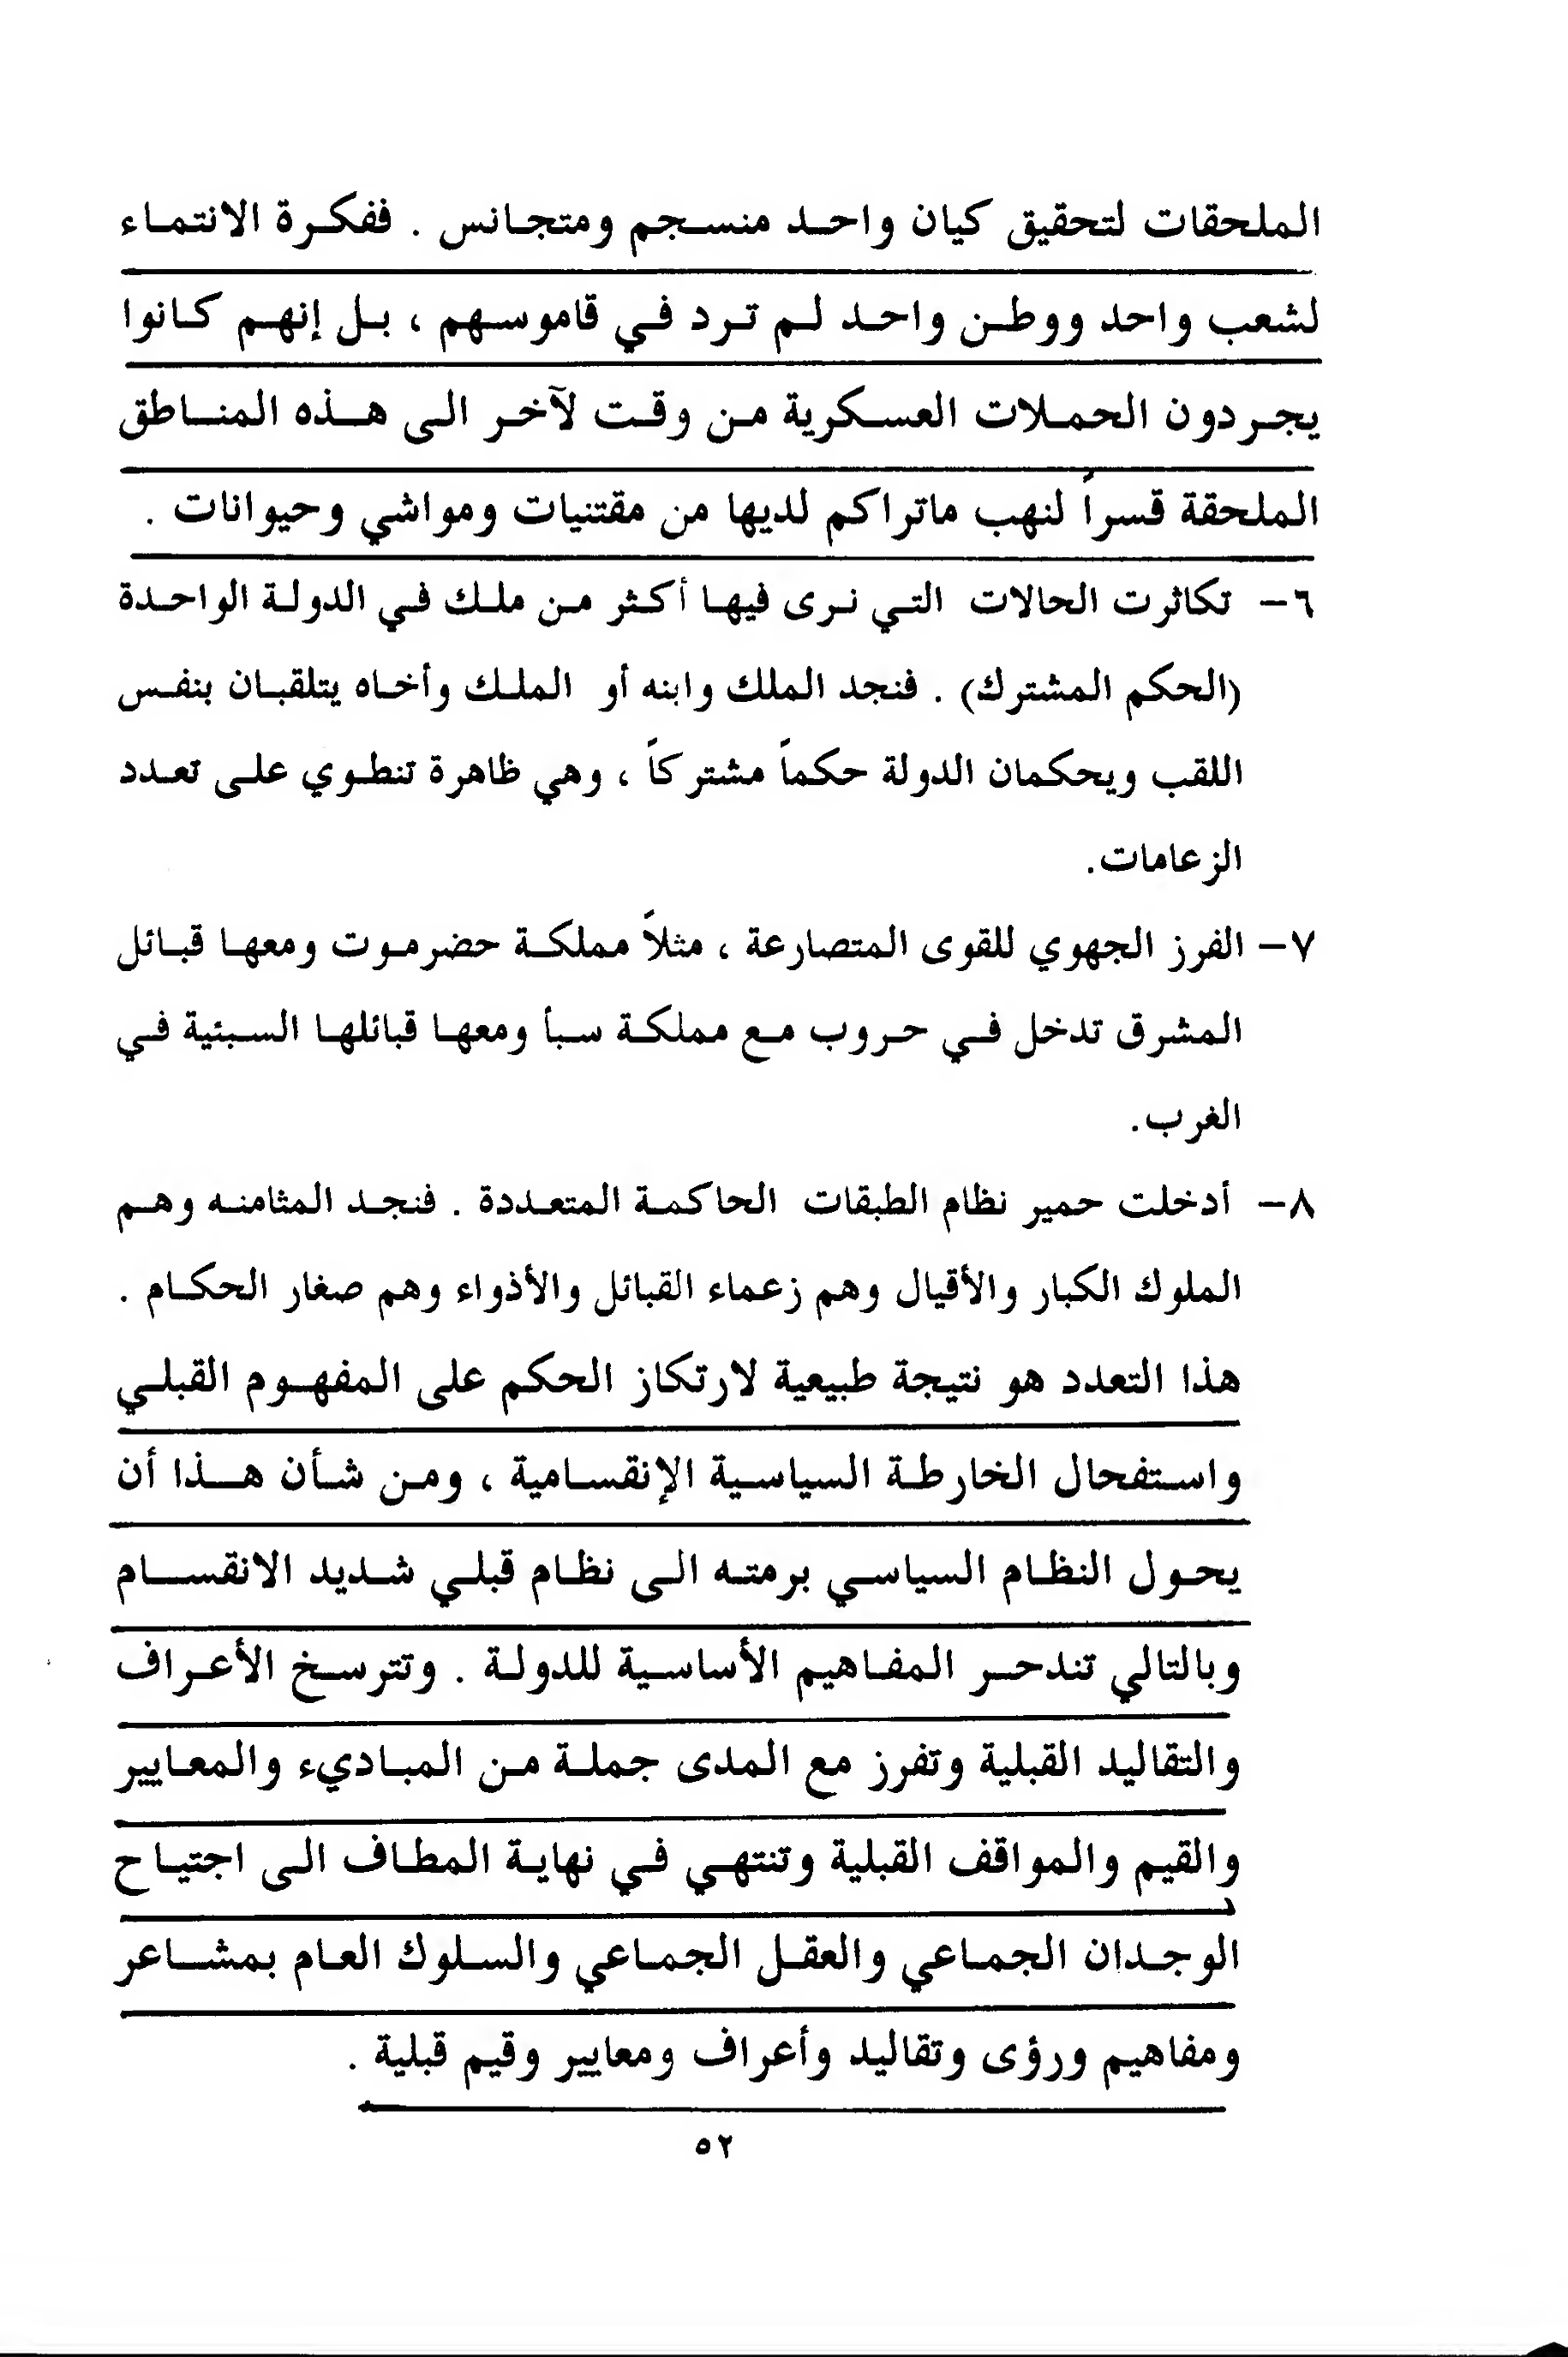 الملحقات لتحقيق كيان واحد منسجم ومتجانس . ففكرة الانتماء
لشعب واحد ووطن واحد لم ترد في قاموسهم ، بل إنهم كانوا
يجردون الحملات العسكرية من وقت لآخر الى هذه المناطق
الملحقة قسراً لنهب ماتراكم لديها من مقتنيات ومواشي وحيوانات .
٦- تكاثرت الحالات التي نرى فيها أكثر من ملك في الدولة الواحدة
(الحكم المشترك) . فنجد الملك وابنه أو الملك وأخاه يتلقبان بنفس
اللقب ويحكمان الدولة حكماً مشتركاً ، وهي ظاهرة تنطوي على تعدد
الزعامات.
٧- الفرز الجهوي للقوى المتصارعة ، مثلاً مملكة حضرموت ومعها قبائل
المشرق تدخل في حروب مع مملكة سبأ ومعها قبائلها السبئية في
الغرب.
٨- أدخلت حمير نظام الطبقات الحاكمة المتعددة . فنجد المثامنه وهم
الملوك الكبار والأقيال وهم زعماء القبائل والأذواء وهم صغار الحكام .
هذا التعدد هو نتيجة طبيعية لارتكاز الحكم على المفهوم القبلي
واستفحال الخارطة السياسية الإنقسامية ، ومن شأن هذا أن
يحول النظام السياسي برمته الى نظام قبلي شديد الانقسام
وبالتالي تندحر المفاهيم الأساسية للدولة . وتترسخ الأعراف
والتقاليد القبلية وتفرز مع المدى جملة من المباديء والمعايير
والقيم والمواقف القبلية وتنتهي في نهاية المطاف الى اجتياح
الوجدان الجماعي والعقل الجماعي والسلوك العام بمشاعر
ومفاهيم ورؤى وتقاليد وأعراف ومعايير وقيم قبلية .
٥٢